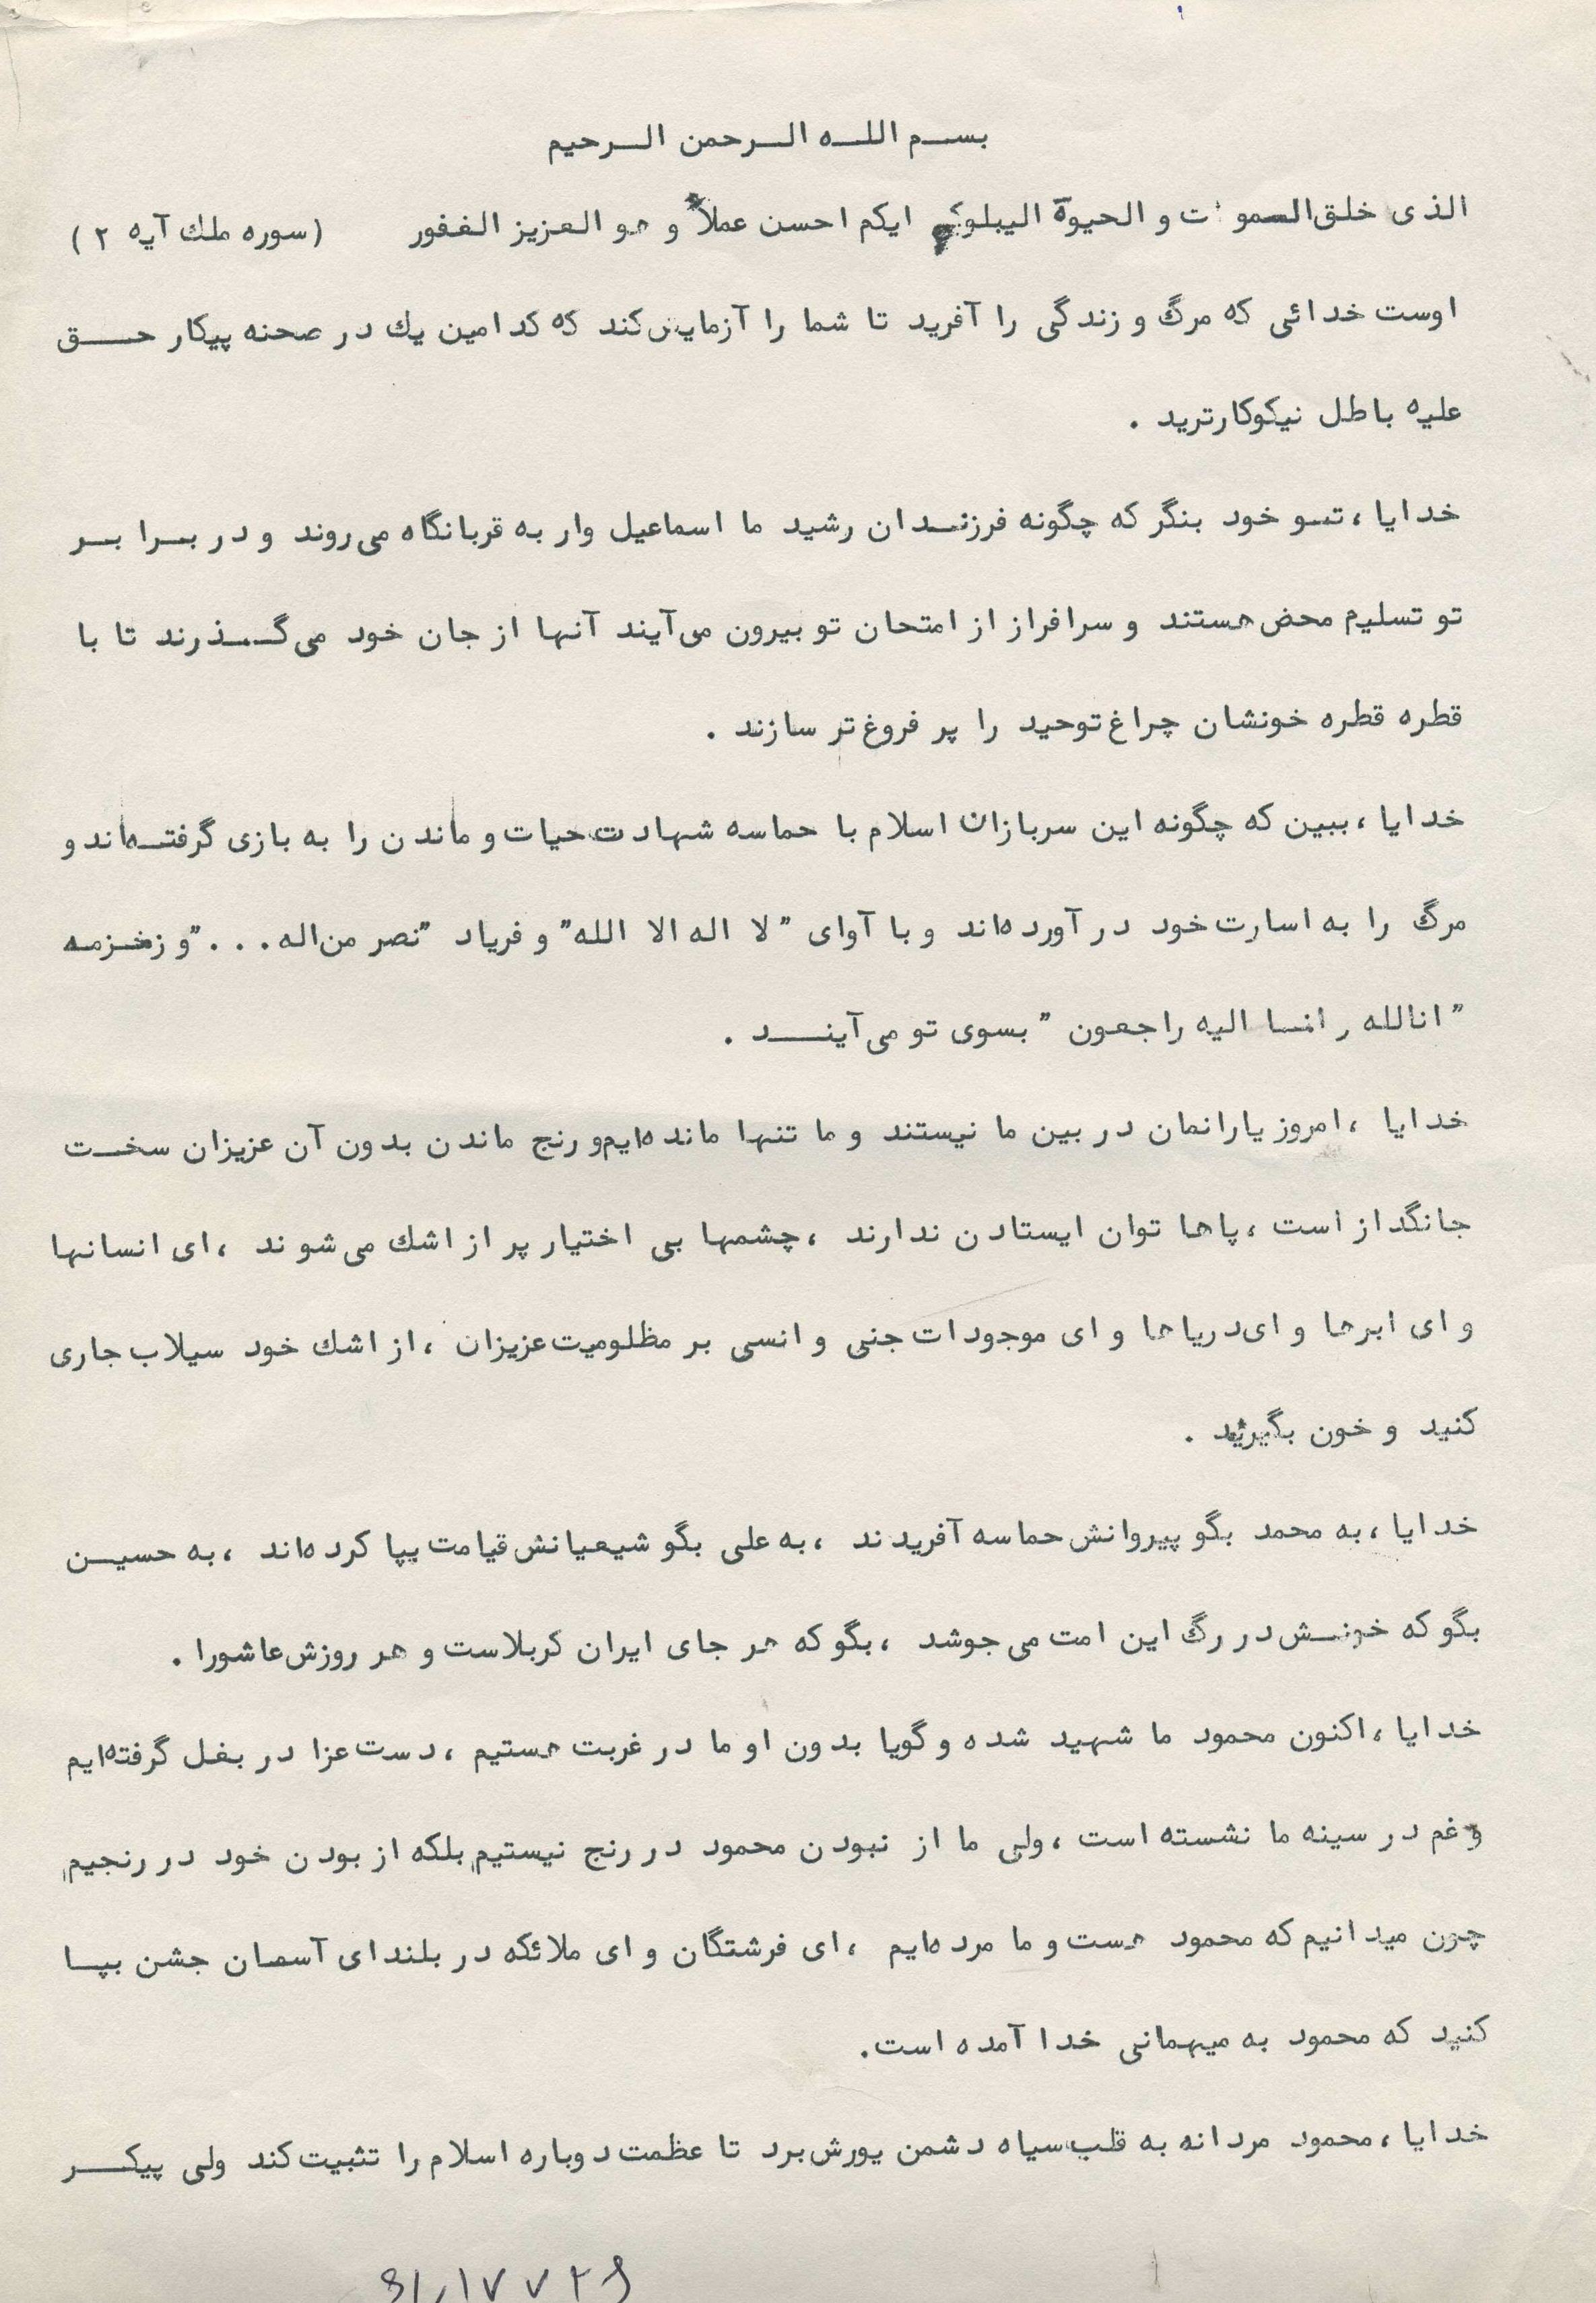 بسم الله الرحمن الرحیم
الذی خلق السموات و الحیوة الیبلوکم ایکم احسن عملاً و هو العزیز الغفور (سوره ملك آیه ۲)
اوست خدائی که مرگ و زندگی را آفرید تا شما را آزمایش کند که کدامین یك در صحنه پیکار حق
علیه باطل نیکوکارترید .
خدایا ، تو خود بنگر که چگونه فرزندان رشید ما اسماعیل وار به قربانگاه می‌روند و در برابر
تو تسلیم محض هستند و سرافراز از امتحان تو بیرون می‌آیند آنها از جان خود می‌گذرند تا با
قطره قطره خونشان چراغ توحید را پر فروغ‌تر سازند .
خدایا ، ببین که چگونه این سربازان اسلام با حماسه شهادت حیات و ماندن را به بازی گرفته‌اند و
مرگ را به اسارت خود در آورده‌اند و با آوای " لا اله الا الله" و فریاد "نصر من اله . . ." و زخزمه
" انالله انا الیه راجعون " بسوی تو می‌آیند .
خدایا ، امروز یارانمان در بین ما نیستند و ما تنها مانده‌ایم و رنج ماندن بدون آن عزیزان سخت
جانگداز است ، پاها توان ایستادن ندارند ، چشمها بی اختیار پر از اشك می‌شوند ، ای انسانها
و ای ابرها و ای دریاها و ای موجودات جنی و انسی بر مظلومیت عزیزان ، از اشك خود سیلاب جاری
کنید و خون بگیرئید .
خدایا ، به محمد بگو پیروانش حماسه آفریدند ، به علی بگو شیعیانش قیامت بپا کرده‌اند ، به حسین
بگو که خونش در رگ این امت می‌جوشد ، بگو که هر جای ایران کربلاست و هر روزش عاشورا .
خدایا ، اکنون محمود ما شهید شده و گویا بدون او ما در غربت هستیم ، دست عزا در بغل گرفته‌ایم
و غم در سینه ما نشسته است ، ولی ما از نبودن محمود در رنج نیستیم بلکه از بودن خود در رنجیم
چون میدانیم که محمود هست و ما مرده‌ایم ، ای فرشتگان و ای ملائکه در بلندای آسمان جشن بپا
کنید که محمود به میهمانی خدا آمده است.
خدایا ، محمود مردانه به قلب سیاه دشمن یورش برد تا عظمت دوباره اسلام را تثبیت کند ولی پیکر